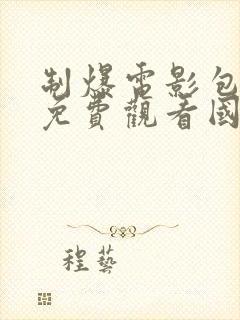 制爆電影包
免費觀看國
程藝